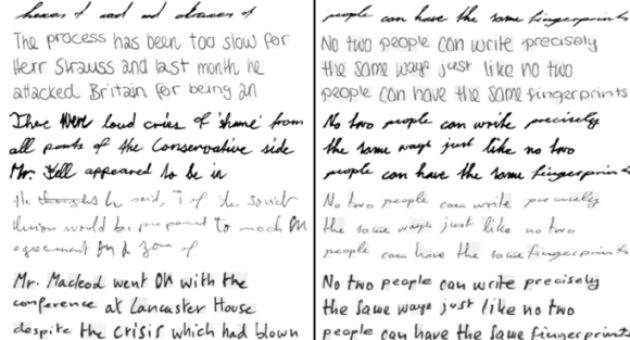 The process has been too slow for
Herr Strauss and last month he
attacked Britain for being an
There were loud cries of 'shame' from
all parts of the Conservative side
Mr. appeared to be in
he said, the soviet
Union would be prepared to
agreement of
Mr. Macleod went on with the
conference at Lancaster House
despite the crisis which had blown
people can have the same fingerprints
No two people can write precisely
the same ways just like no two
people can have the same fingerprints
No two people can write precisely
the same ways just like no two
people can have the same fingerprints
No two people can write precisely
the same ways just like no two
people can have the same fingerprints
No two people can write precisely
the same ways just like no two
people can have the same fingerprints